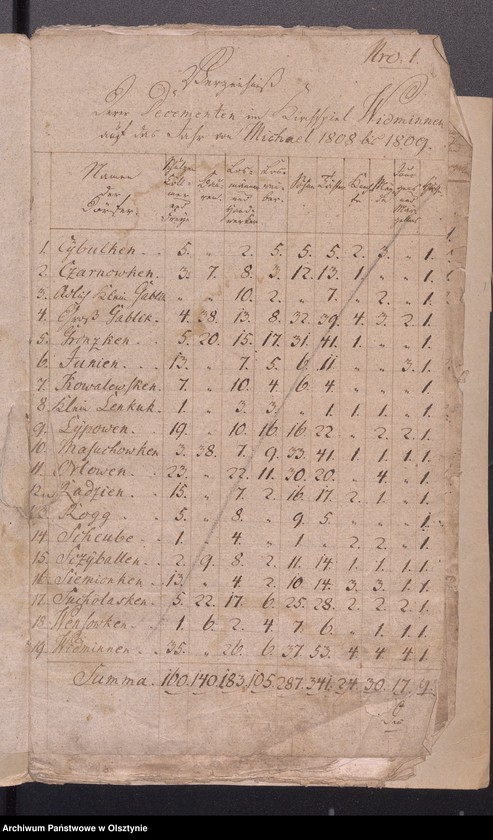 Nro. 1.
Verzeichniß
Derer Decementen im Kirchspiel Widminnen
auf das Jahr von Michael 1808 bis 1809.
Namen der Dörfer.
1. Czybulken. . 5. " 2. 5. 5. 5. 2. 3. " 1.
2. Czarnowken. 3. 7. 8. 3. 12. 13. 1. " " 1.
3. Adlich Klein Gablik. " " 10. 2. " 7. " 2. " 1.
4. Groß Gablik. 4. 38. 13. 8. 32. 39. 4. 3. 2. 1.
5. Gronzken. 5. 20. 15. 17. 31. 41. 1. " " 1.
6. Junien. 13. " 7. 5. 6. 11. " " 3. 1.
7. Kowalewsken. 7. " 10. 4. 6. 4. " " " 1.
8. Klein Lenkuk. 1. " 3. 3. " 1. 1. 1. " 1.
9. Lypowen. 19. " 10. 16. 16. 22. " 2. 2. 1.
10. Masuchowken 3. 38. 7. 9. 33. 41. 1. 1. 1. 1.
11. Orlowen. 23. " 22. 11. 30. 20. " 4. " 1.
12. Radzien. 15. " 7. 2. 16. 17. 2. 1. " 1.
13. Rogg. 5. " 8. " 9. 5. " " " 1.
14. Scheube. 1. " 4. " 1. " 2. 2. " 1.
15. Sczyballen. 2. 9. 8. 2. 11. 14. 1. 1. 1. 1.
16. Siemionken. 13. " 4. 2. 10. 14. 3. 3. 1. 1.
17. Sucholasken. 5. 22. 17. 6. 25. 28. 2. 2. 2. 1.
18. Wensowken. 1. 6. 2. 4. 7. 6. " 1. 1. 1.
19. Widminnen. 35. " 26. 6. 37. 53. 4. 4. 4. 1.
Summa. 160. 140. 183. 105. 287. 341. 24. 30. 17.
Archiwum Państwowe w Olsztynie